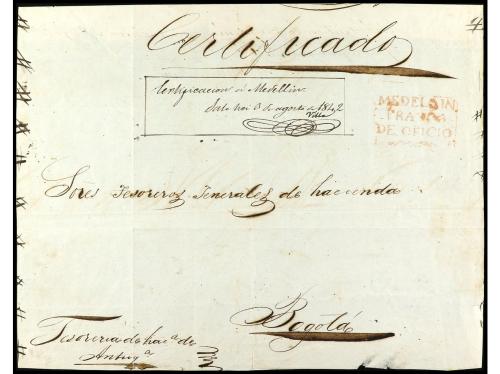 Certificado
Certificacion de Medellin
Sale hoi 3 de agosto de 1842
Villa
MEDELLIN
FRANCA
DE OFICIO
Sōres Tesoreros Jenerales de hacienda
Bogotá
Tesoreria de hac.ª de
Antiq.ª